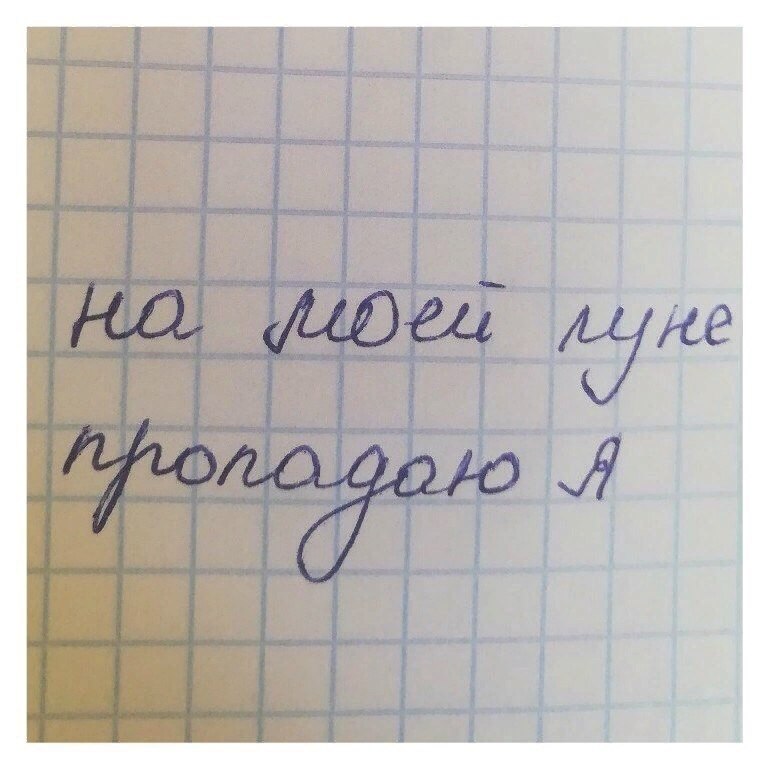 на моей луне
пропадаю я